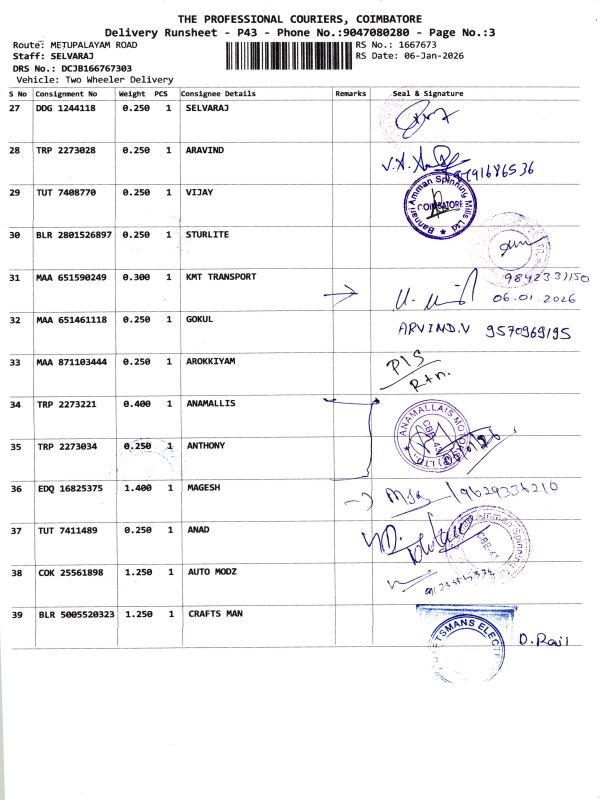 THE PROFESSIONAL COURIERS, COIMBATORE
Delivery Runsheet - P43 - Phone No.:9047080280 - Page No.:3
Route: METUPALAYAM ROAD
Staff: SELVARAJ
DRS No.: DCJB166767303
Vehicle: Two Wheeler Delivery
RS No.: 1667673
RS Date: 06-Jan-2026
S No Consignment No Weight PCS Consignee Details Remarks Seal & Signature
27 DDG 1244118 0.250 1 SELVARAJ
28 TRP 2273028 0.250 1 ARAVIND
29 TUT 7408770 0.250 1 VIJAY
Bannari Amman Spinning Mills Ltd
COIMBATORE
30 BLR 2801526897 0.250 1 STURLITE
31 MAA 651590249 0.300 1 KMT TRANSPORT
9842331150
06.01.2026
32 MAA 651461118 0.250 1 GOKUL ARVIND.V 9570969195
33 MAA 871103444 0.250 1 AROKKIYAM P/S
Rtn.
34 TRP 2273221 0.400 1 ANAMALLIS
ANAMALLAIS MOTORS
CBE-43
35 TRP 2273034 0.250 1 ANTHONY
36 EDQ 16825375 1.400 1 MAGESH 9629336210
37 TUT 7411489 0.250 1 ANAD
Amman Spinning
38 COK 25561898 1.250 1 AUTO MODZ
39 BLR 5005520323 1.250 1 CRAFTS MAN
D. Raji